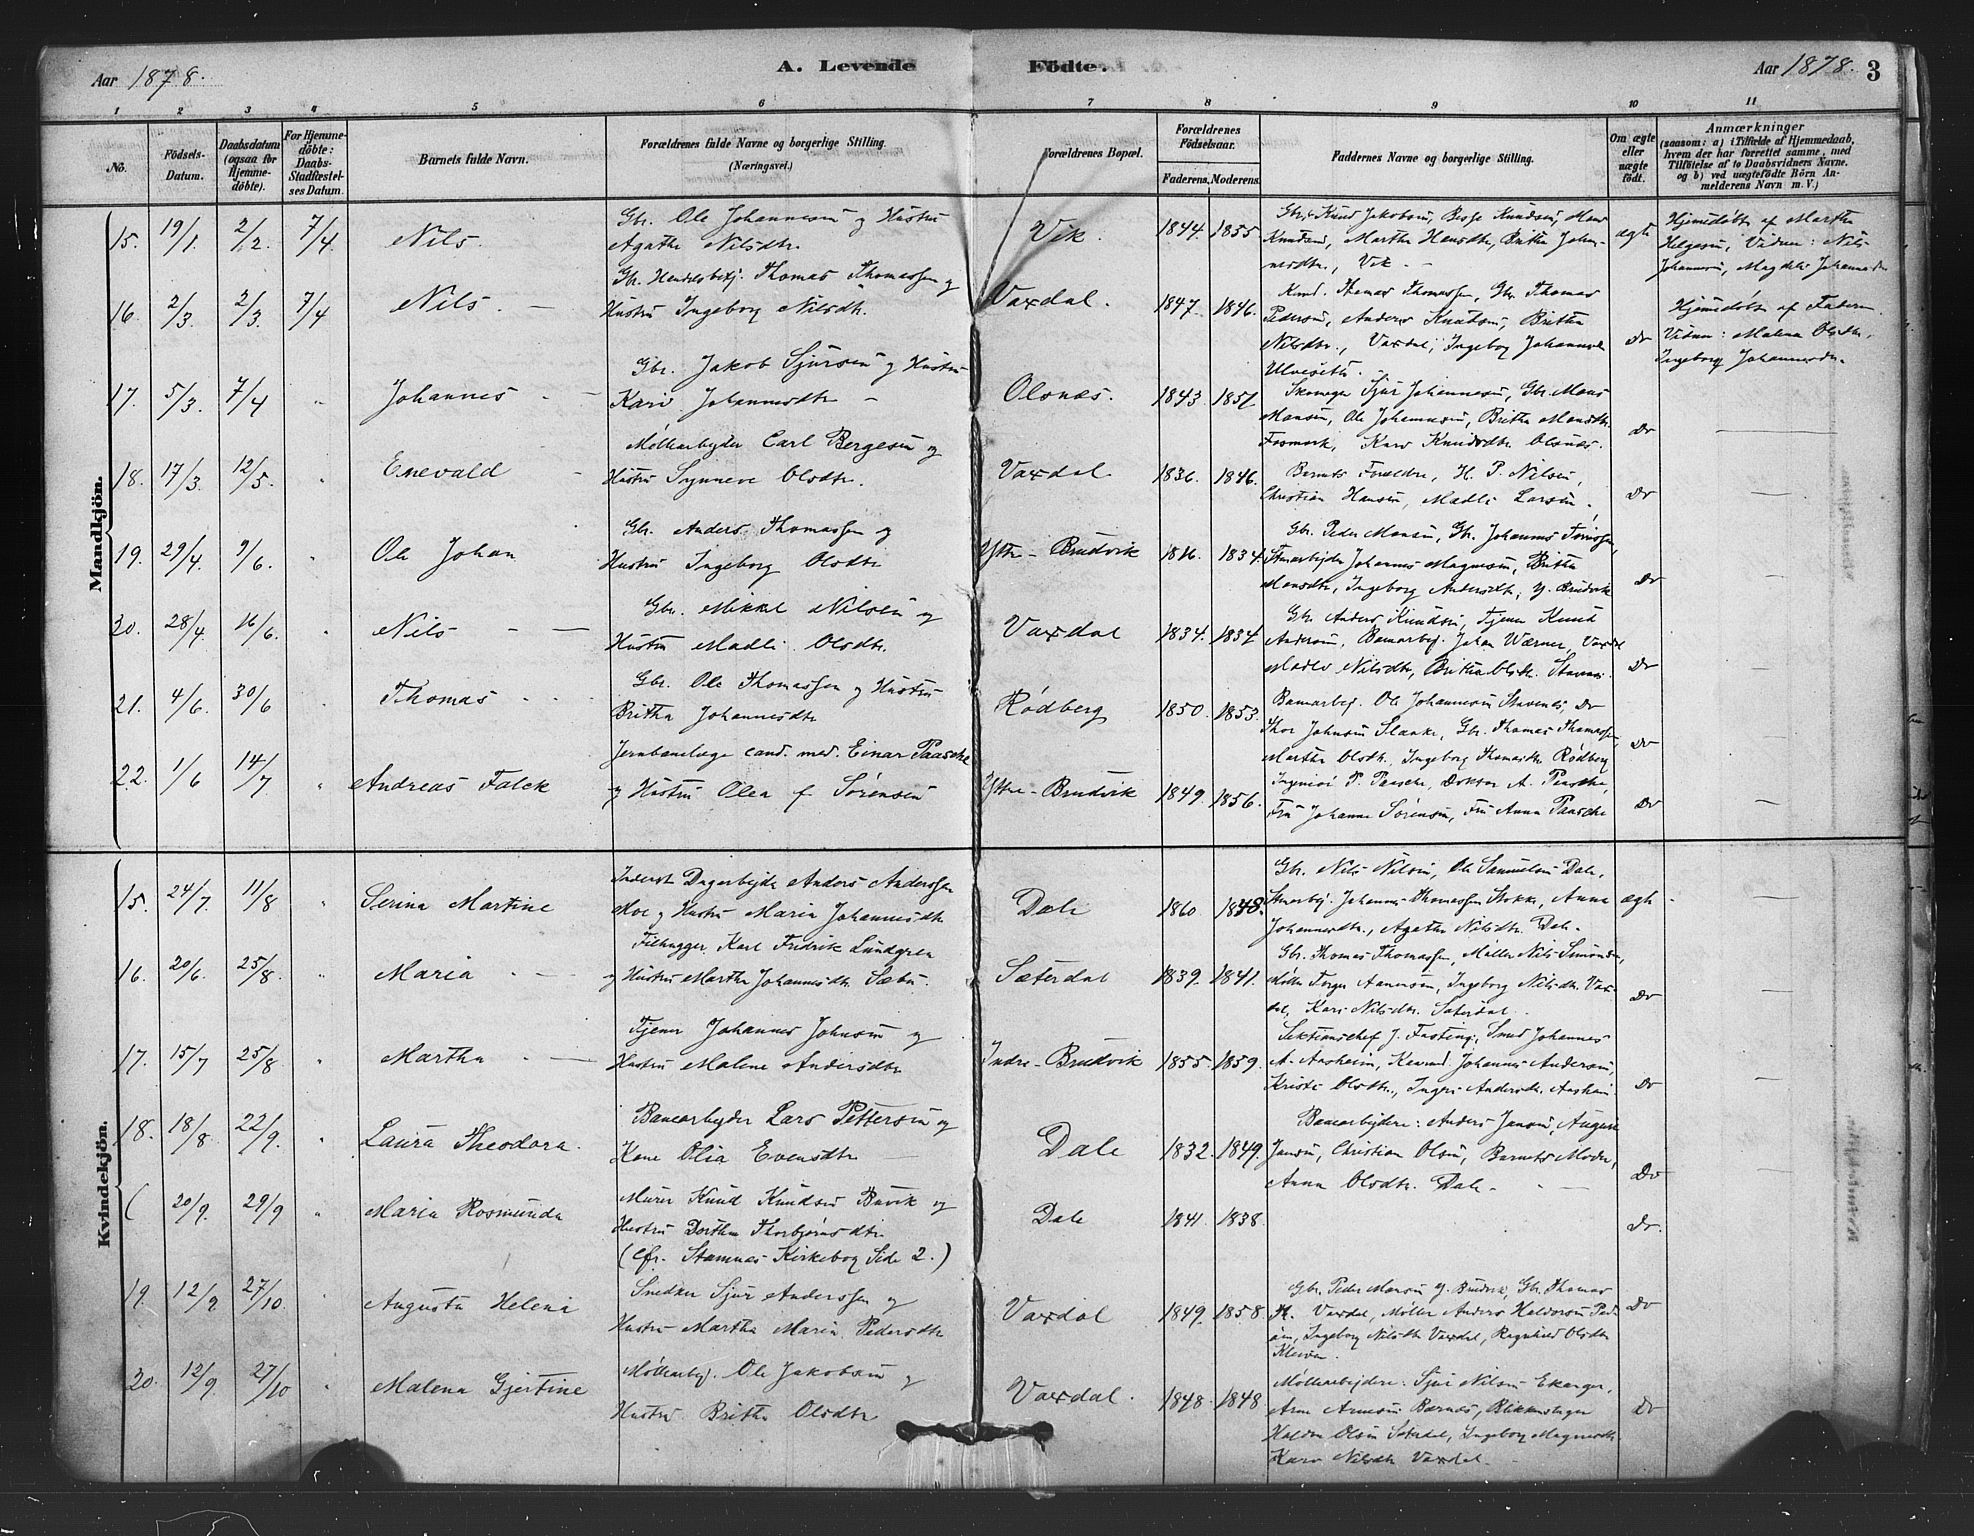 Aar 1878. A. Levende Födte. Aar 1878. 3
1 2 3 4 5 6 7 8 9 10 11
No. Födsels-Datum. Daabsdatum (ogsaa for Hjemmedöbte). For Hjemmedöbte: Daabs-Stadfæstelses Datum. Barnets fulde Navn. Forældrenes fulde Navne og borgerlige Stilling. (Næringsvei.) Forældrenes Bopæl. Forældrenes Födselsaar. Faderens. Moderens. Faddernes Navne og borgerlige Stilling. Om ægte eller uægte födt. Anmærkninger (saasom: a) i Tilfælde af Hjemmedaab, hvem der har forrettet samme, med Tilföielse af to Daabsvidners Navne. og b) ved uægtefödte Börn Anmelderens Navn m. V.)
Mandkjön.
15. 19/1. 2/2. 7/4. Nils. Gbr. Ole Johannesen og Hustru Agathe Nilsdtr. Vik. 1844. 1855. Gbr. Knud Jakobsen, Knudsen, Martha Hansdtr., Britha Johannesdtr., Vik. ægte Hjemmedøbt af Martha Helgesen, Vidner: Nils Johannesen, Magdeli Johannesdtr.
16. 2/3. 2/3. 7/4 Nils. Gbr. Thomas Thomassen og Hustru Ingeborg Nilsdtr. Vaxdal. 1847. 1846. Thomas Thomassen, Gbr. Thomas Pedersen, Anders Knudsen, Britha Nilsdtr., Vaxdal, Ingeborg Johannesdtr. Ulvesæter. Do Hjemmedøbt af Faderen. Vidner: Malena Olsdtr., Ingeborg Johannesdtr.
17. 5/3. 7/4 " Johannes Gbr. Jakob Sjursen og Hustru Kari Johannesdtr. Olsnæs. 1843. 1851. Sjur Johannesen, Gbr. Mons Monsen, Ole Johannesen, Britha Monsdtr. Fosmark, Kari Knudsdtr. Olsnæs. Do
18. 17/3. 12/5. " Enevald Møllearbejder Carl Bergesen og Hustru Synneve Olsdtr. Vaxdal 1836. 1846. Barnets Forældre, H. P. Nilsen, Christian Hansen, Madli Larsen. Do
19. 29/4. 9/6. " Ole Johan Gbr. Anders Thomassen og Hustru Ingeborg Olsdtr. Ytre-Brudvik 1834. Gbr. Peder Monsen, Gbr. Johannes Johannes Magnesen, Britha Monsdtr., Ingeborg Andersdtr., Y. Brudvik Do
20. 28/4. 16/6. " Nils Gbr. Mikkel Nilsen og Hustru Madli Olsdtr. Vaxdal 1834. 1834 Gbr. Anders Knudsen, Tjener Knud Andersen, Banearbej. Johan Wærner, Vaxdal Madli Nilsdtr., Britha Olsdtr. Stavnes. Do
21. 4/6. 30/6 Thomas Gbr. Ole Thomassen og Hustru Britha Johannesdtr. Rødberg 1850. 1853. Banearbej. Ole Johannesen Stavenes, Do Thor Johnsen, Gbr. Thomas Thomassen, Martha Olsdtr., Ingeborg Thomasdtr. Rødberg Do
22. 1/6 14/7 " Andreas Falck Jernbanelæge cand. med. Einar Paasche og Hustru Olea f. Sørensen Ytre-Brudvik 1849. 1856. Ingeniør P. Paasche, Doktor A. Paasche, Fru Johanne Sørensen, Fru Anna Paasche Do
Kvindekjön.
15. 24/7. 11/8 " Serina Martine Inderst Dagarbejder Anders Anderssen Moe og Hustru Maria Johannesdtr. Dale 1860 Gbr. Nils Nilsen, Ole Samuelsen Dale, Johannes Thomassen, Anna Johannesdtr., Agatha Nilsdtr. Dale. ægte
16. 20/6. 25/8. " Maria Filhugger Karl Fredrik Lundgren og Hustru Martha Johannesdtr. Sæbø. Sæterdal 1839. 1841. Gbr. Thomas Thomassen, Møller Nils Simonsen, Møller Torger Aanensen, Ingeborg Nilsdtr. Vaxdal, Kari Nilsdtr. Sæterdal. Do
17. 15/7 25/8 " Martha Tjener Johannes Johnsen og Hustru Malene Andersdtr. Indre-Brudvik 1855. 1859. Sektionschef J. Fasting, Smed Johannes A. Aasheim, Johannes Andersen, Kristi Olsdtr., Ingeri Andersdtr. Aasheim Do
18. 18/8 22/9. " Laura Theodora. Banearbejder Lars Pettersen og Kone Olia Evensdtr. Dale 1832. 1849. Banearbejdere: Anders Jansen, August Jansen, Christian Olsen, Barnets Moder, Anna Olsdtr. Dale. Do
( 20/9. 29/9 " Maria Rosmunda Murer Knud Knudsen Buvik og Hustru Dorthea Thorbjørnsdtr. (Cfr. Stamnes Kirkebog Side 2.) Dale 1841. 1838. Do.
19. 12/9 27/10. " Augusta Helena Snedker Sjur Anderssen og Hustru Martha Maria Pedersdtr. Vaxdal 1849. 1858. Gbr. Peder Monsen Y. Brudvik, Gbr. Thomas Th. Vaxdal, Møller Anders Haldorsen, Ingeborg Nilsdtr. Vaxdal, Ragnhild Olsdtr. Do
20. 12/9. 27/10 " Malena Gjertine Møllearbej. Ole Jakobsen og Hustru Britha Olsdtr. Vaxdal. 1848. 1848 Møllearbejdere: Sjur Nilsen Ekanger, Arne Arnesen Bærnes, Blikkenslager Haldor Olsen Sæterdal, Ingeborg Magnesdtr. Kari Nilsdtr. Vaxdal. Do